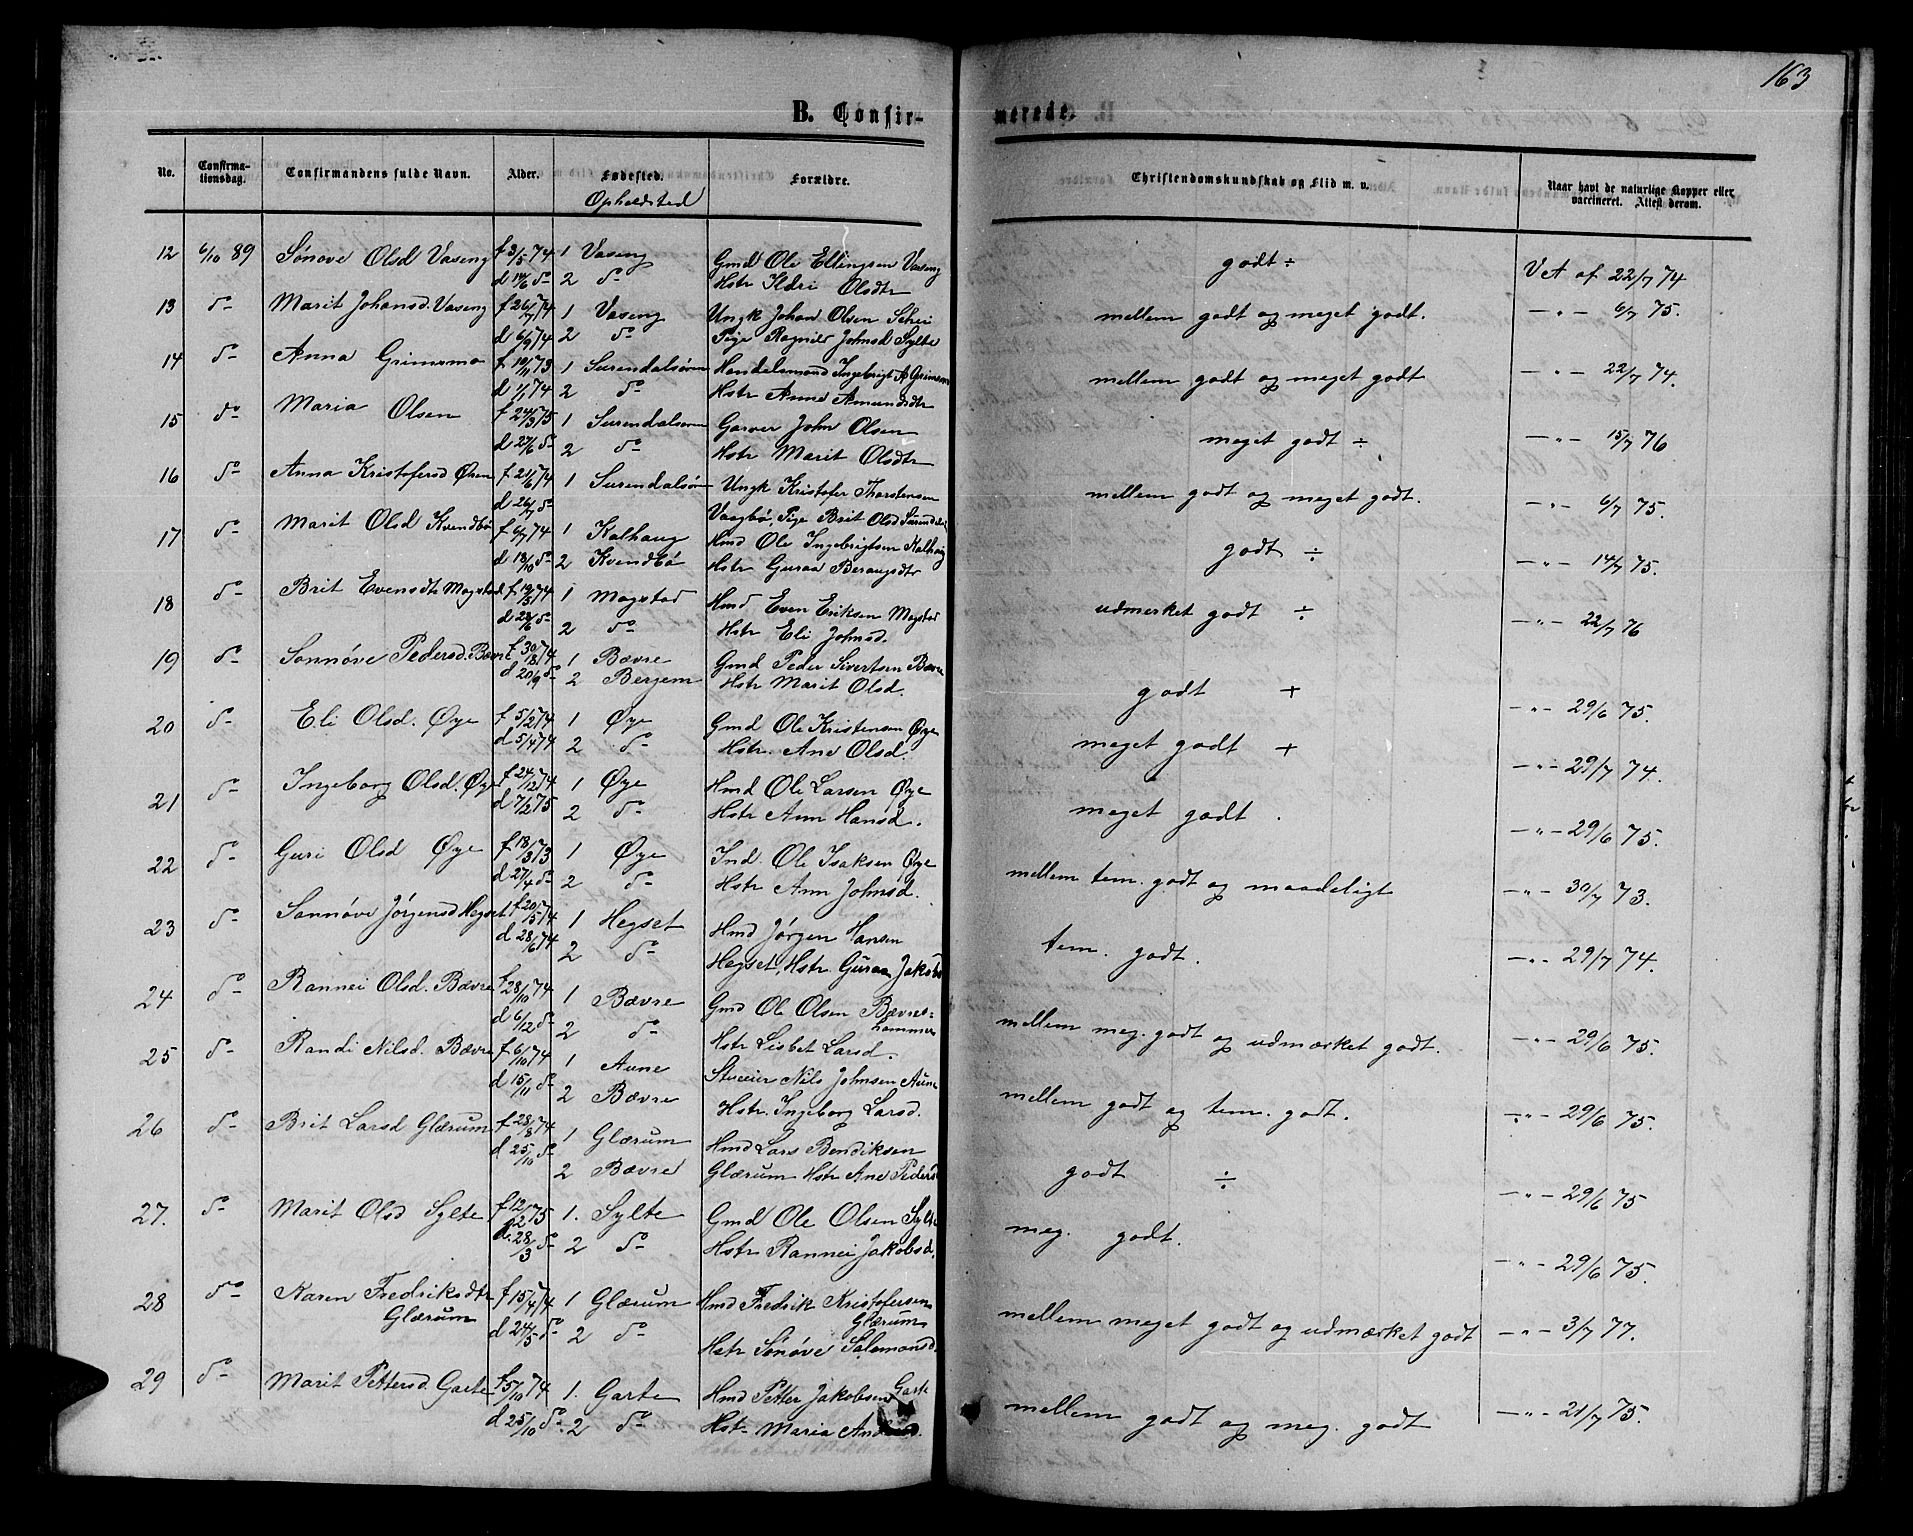 163
B. Confir-
merede.
No.
Confirma-
tionsdag.
Confirmandens fulde Navn.
Alder.
Fødested.
Opholdsted
Forældre.
Christendomskundskab og Flid m. v.
Naar havt de naturlige Kopper eller
vaccineret. Attest derom.
12 6/10 89 Sønove Olsd Vaseng f 3/5 74 1 Vaseng Gmd Ole Ellingsen Vaseng godt ÷ VA af 22/7 74
d 14/6 do 2 do Hstr Ildri Olsdtr
13 do Marit Johansd. Vaseng f 26/7 74 1 Vaseng Ungk Johan Olsen Schei mellem godt og meget godt. — " — 6/7 75.
d 6/9 74 2 do Pige Ragnild Johnsd Sylte
14 do Anna Grimsmo f 10/11 73 1 Surendalsøren Handelsmand Ingebrigt A Grimsmo mellem godt og meget godt — " — 22/7 74.
d 1/1 74 2 do Hstr Anne Amundsdtr
15 do Maria Olsen f 24/3 75 1 Surendalsøren Garver John Olsen meget godt ÷ — " — 15/7 76
d 27/6 do 2 do Hstr Marit Olsdtr
16 do Anna Kristofersd Øren f 21/6 74 1 Surendalsøren Ungk Kristofer Thorstensen mellem godt og meget godt. — " — 6/7 75.
d 26/7 do Vaagbø, Pige Brit Olsd Surendals
17 do Marit Olsd Kvendbø f 6/7 74 1 Kalhaug Hmd Ole Ingebrigtsen Kalhaug godt ÷ — " — 14/7 75.
d 18/10 do 2 Kvendbø Hstr Guraa Beraugsdtr
18 do Brit Evensdtr Mogstad f 19/5 74 1 Mogstad Hmd Even Eriksen Mogstad udmerket godt ÷ — " — 22/7 76
d 28/6 do 2 do Hstr Eli Johnsd.
19 do Sonnøve Pedersd. Bævre f 30/8 74 1 Bævre Gmd Peder Sivertsen Bævre godt + — " — 29/6 75.
d 20/9 do 2 Bergem Hstr Marit Olsd.
20 do Eli Olsd. Øye f 5/2 74 1 Øye Gmd Ole Kristensen Øye meget godt + — " — 29/7 74.
d 5/4 74 2 do Hstr. Ane Olsd.
21 do Ingeborg Olsd. Øye f 24/12 74 1 Øye Hmd Ole Larsen Øye meget godt. — " — 29/6 75.
d 7/2 75 2 do Hstr Ann Hansd.
22 do Guri Olsd Øye f 18/3 73 1 Øye Ind. Ole Isaksen Øye mellem tem. godt og maadeligt — " — 30/7 73.
d 27/4 do 2 do Hstr Ann Johnsd.
23 do Sonnøve Jørgensd Hegset f 20/5 74 1 Hegset Hmd Jørgen Hansen tem. godt. — " — 29/7 74.
d 28/6 74 2 do Hegset, Hstr. Guraa Jakobs
24 do Rannei Olsd. Bævre f 28/10 74 1 Bævre Gmd Ole Olsen Bævres= mellem meg. godt og udmærket godt. — " — 29/6 75.
lammen
d 6/12 do 2 do Hstr Lisbet Larsd.
25 do Randi Nilsd. Bævre f 6/10 74 1 Aune Stueeier Nils Johnsen Aune mellem godt og tem. godt. — " — 29/6 75.
d 15/11 do 2 Bævre Hstr. Ingeborg Larsd.
26 do Brit Larsd Glærum f 28/8 74 1 Glærum Hmd Lars Bendiksen godt ÷ — " — 29/6 75
d 25/10 do 2 Bævre Glærum Hstr Ane Pedersd
27. do Marit Olsd Sylte f 12/2 75 1. Sylte Gmd Ole Olsen Sylte meg. godt. — " — 29/6 75.
d. 28/3 do 2 do Hstr Rannei Jakobsd.
28 do Karen Fredriksdtr f 15/4 74 1 Glærum Hmd Fredrik Kristofersen mellem meget godt og udmærket godt — " — 3/7 77.
Glærum Glærum
d 24/5 do 2 do Hstr Sønøve Salomonsd.
29 do Marit Pettersd. Garte f 5/10 74 1. Garte Hmd Petter Jakobsen Garte mellem godt og meg. godt — " — 21/7 75.
d 25/10 do. 2 do Hstr Maria